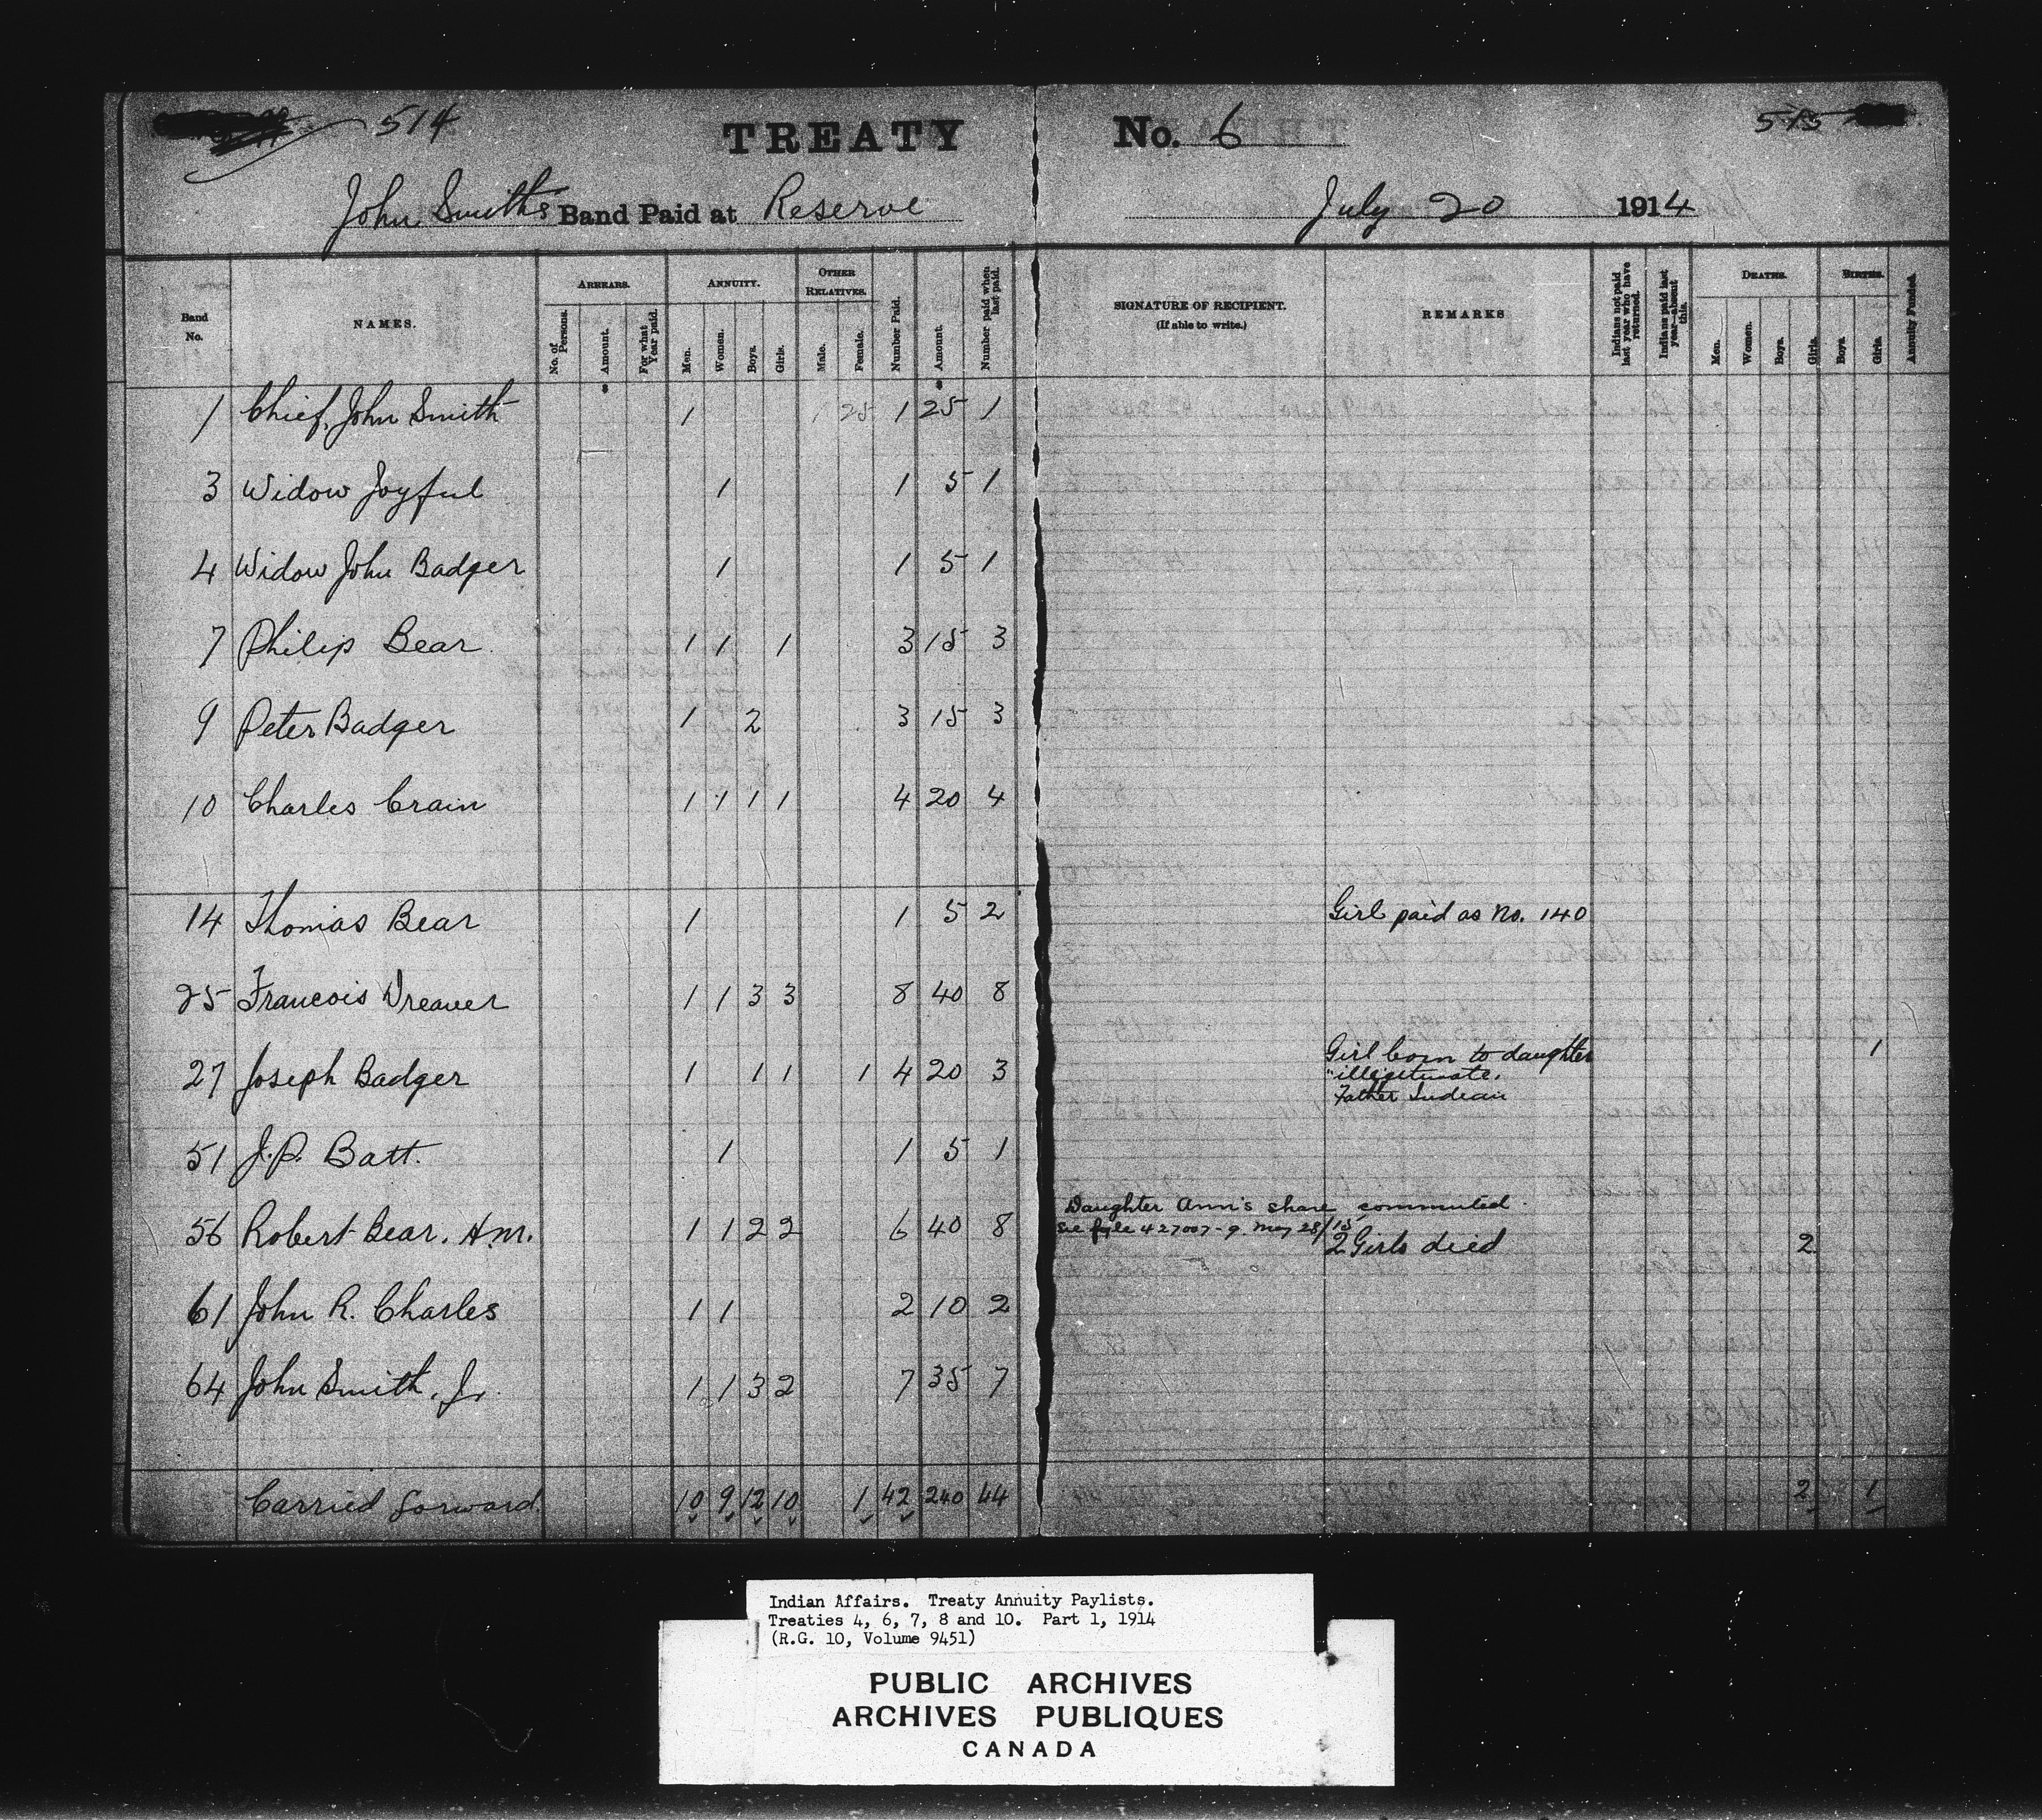 514 TREATY No. 6 515
John Smith's Band Paid at Reserve July 20 1914
Band No. NAMES. ARREARS. No. of Persons. Amount. For what Year paid. ANNUITY. Men. Women. Boys. Girls. OTHER RELATIVES. Male. Female. Number Paid. Amount. Number paid when last paid. SIGNATURE OF RECIPIENT. (If able to write.) REMARKS Indians not paid last year who have returned. Indians paid last year—absent this. DEATHS. Men. Women. Boys. Girls. BIRTHS. Boys. Girls. Annuity Funded.
1 Chief, John Smith 1 1 25 1 25 1
3 Widow Joyful 1 1 5 1
4 Widow John Badger 1 1 5 1
7 Philip Bear 1 1 1 3 15 3
9 Peter Badger 1 2 3 15 3
10 Charles Crain 1 1 1 1 4 20 4
14 Thomas Bear 1 1 5 2 Girl paid as No. 140
25 Francois Dreaver 1 1 3 3 8 40 8
27 Joseph Badger 1 1 1 1 4 20 3 Girl born to daughter 1
"illigitimate.
Father Indian
51 J.P. Batt. 1 1 5 1
Daughter Ann's share commuted.
See fyle 427007-9. May 28/15
56 Robert Bear, H.M. 1 1 2 2 6 40 8 2 Girls died 2
61 John R. Charles 1 1 2 10 2
64 John Smith, Jr. 1 1 3 2 7 35 7
Carried forward 10 9 12 10 1 42 240 44 2 1
Indian Affairs. Treaty Annuity Paylists.
Treaties 4, 6, 7, 8 and 10. Part 1, 1914
(R.G. 10, Volume 9451)
PUBLIC ARCHIVES
ARCHIVES PUBLIQUES
CANADA